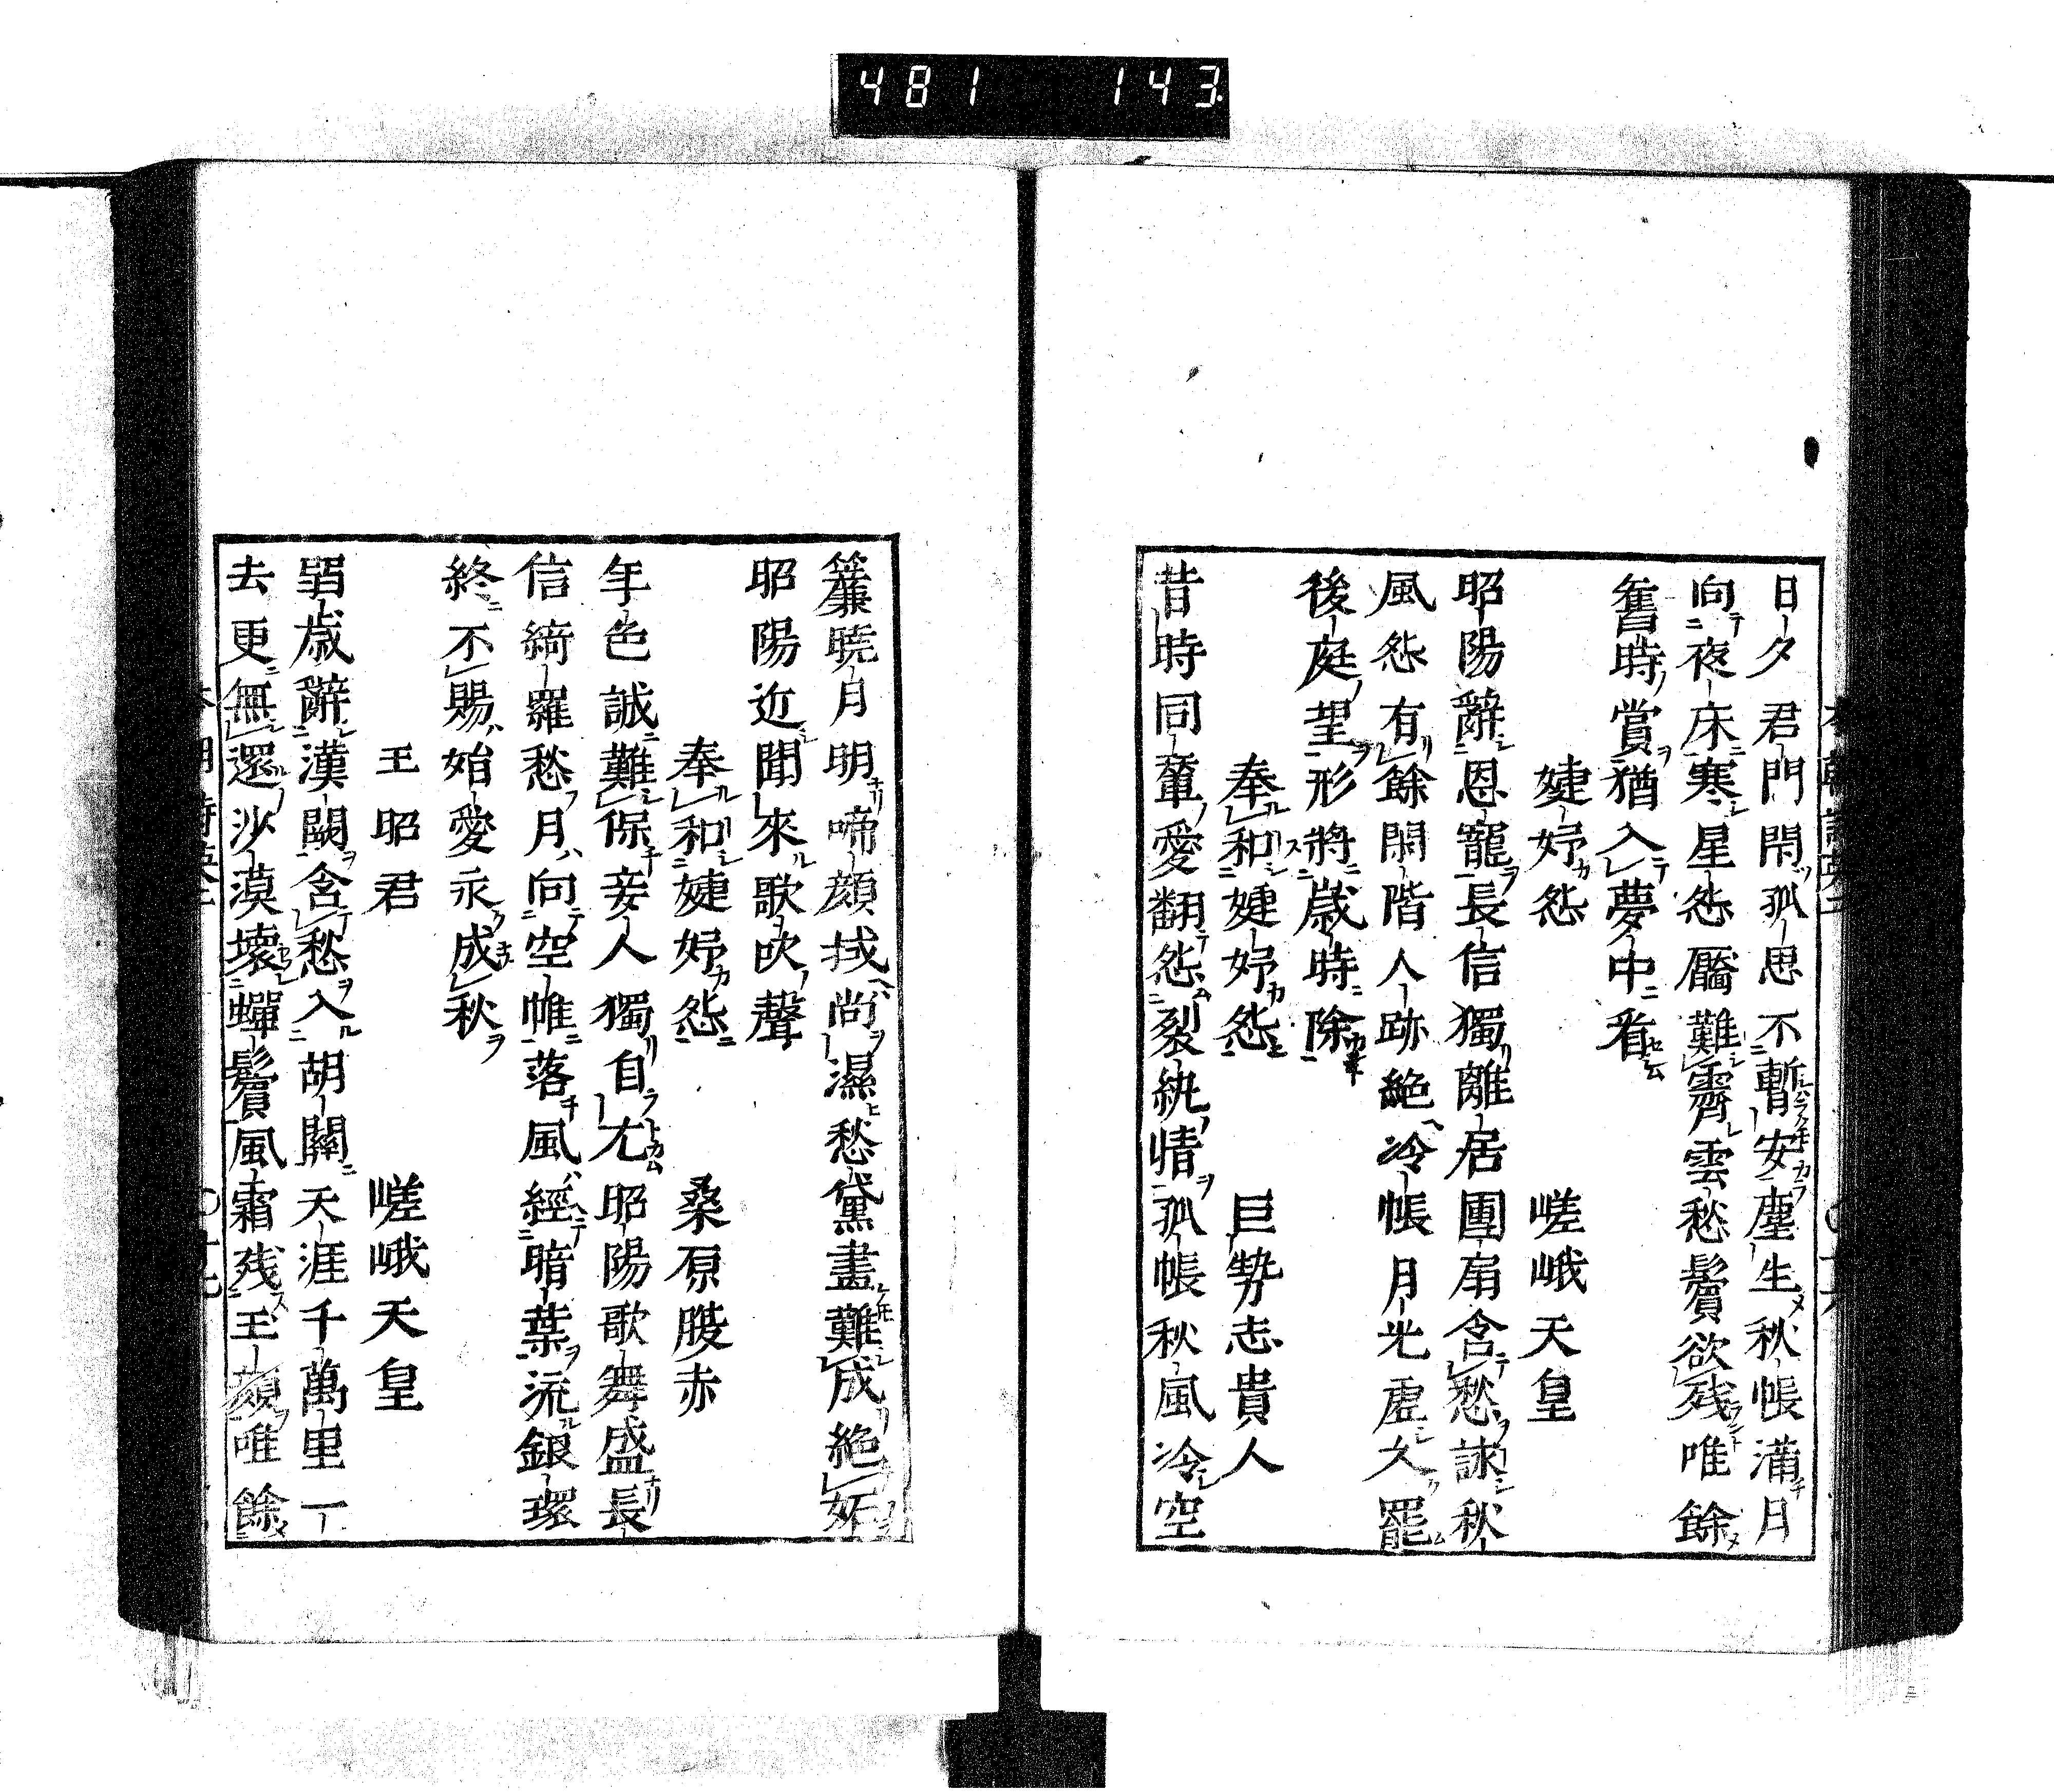 481 143
日夕君門閇孤思不暫安塵生秋帳滿月
向夜床寒星怨靨難霽雲愁鬢欲残唯餘
舊時賞猶入夢中看
婕妤怨 嵯峨天皇
昭陽辭恩寵長信獨離居團扇含愁詠秋
風怨有餘閑階人跡絶冷帳月光虚久罷
後庭望形將歳時除
奉和婕妤怨 巨勢志貴人
昔時同輦愛翻怨裂紈情孤帳秋風冷空
簾暁月明啼顔拭尚濕愁黛畫難成絶妬
昭陽近聞來歌吹聲
奉和婕妤怨 桑原腹赤
年色誠難保妾人獨自尤昭陽歌舞盛長
信綺羅愁月向空帷落風經暗葉流銀環
終不賜始愛永成秋
王昭君 嵯峨天皇
弱歳辭漢闕含愁入胡關天涯千萬里一
去更無還沙漠壞蟬鬢風霜残王顔唯餘